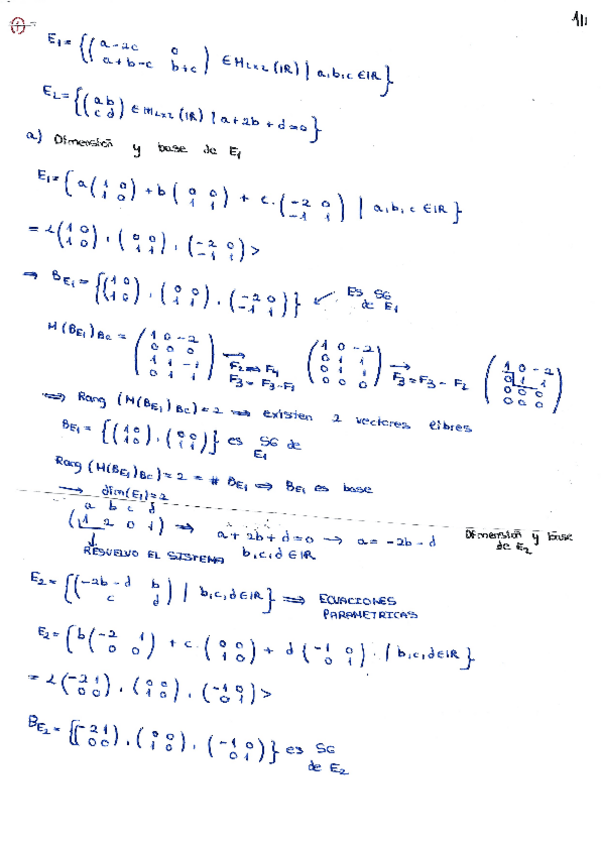 ① 1|1
E₁ = {(a-2c 0 ; a+b-c b+c) ∈ M₂ₓ₂(IR) | a,b,c ∈ IR}
E₂ = {(a b ; c d) ∈ M₂ₓ₂(IR) | a+2b+d=0}
a) Dimensión y base de E₁
E₁ = {a(1 0 ; 1 0) + b(0 0 ; 1 1) + c·(-2 0 ; -1 1) | a,b,c ∈ IR}
= L(1 0 ; 1 0), (0 0 ; 1 1), (-2 0 ; -1 1)>
⇒ B_E₁ = {(1 0 ; 1 0), (0 0 ; 1 1), (-2 0 ; -1 1)} ← Es SG de E₁
M(B_E₁)_Bc = (1 0 -2 ; 0 0 0 ; 1 1 -1 ; 0 1 1) → F₂ ↔ F₄ F₃ = F₃-F₁ (1 0 -2 ; 0 1 1 ; 0 1 1 ; 0 0 0) → F₃=F₃-F₂ (1 0 -2 ; 0 1 1 ; 0 0 0 ; 0 0 0)
⇒ Rang (M(B_E₁)_Bc) = 2 ⇒ existen 2 vectores libres
B_E₁ = {(1 0 ; 1 0), (0 0 ; 1 1)} es SG de E₁
Rang (M(B_E₁)_Bc) = 2 = # B_E₁ ⇒ B_E₁ es base
→ dim(E₁)=2
a b c d
(1 2 0 1) ⇒ a+2b+d=0 → a= -2b-d Dimensión y base de E₂
RESUELVO EL SISTEMA b,c,d ∈ IR
E₂ = {(-2b-d b ; c d) | b,c,d ∈ IR} ⇒ ECUACIONES PARAMETRICAS
E₂ = {b(-2 1 ; 0 0) + c·(0 0 ; 1 0) + d(-1 0 ; 0 1) · | b,c,d ∈ IR}
= L(-2 1 ; 0 0), (0 0 ; 1 0), (-1 0 ; 0 1)>
B_E₂ = {(-2 1 ; 0 0), (0 0 ; 1 0), (-1 0 ; 0 1)} es SG de E₂